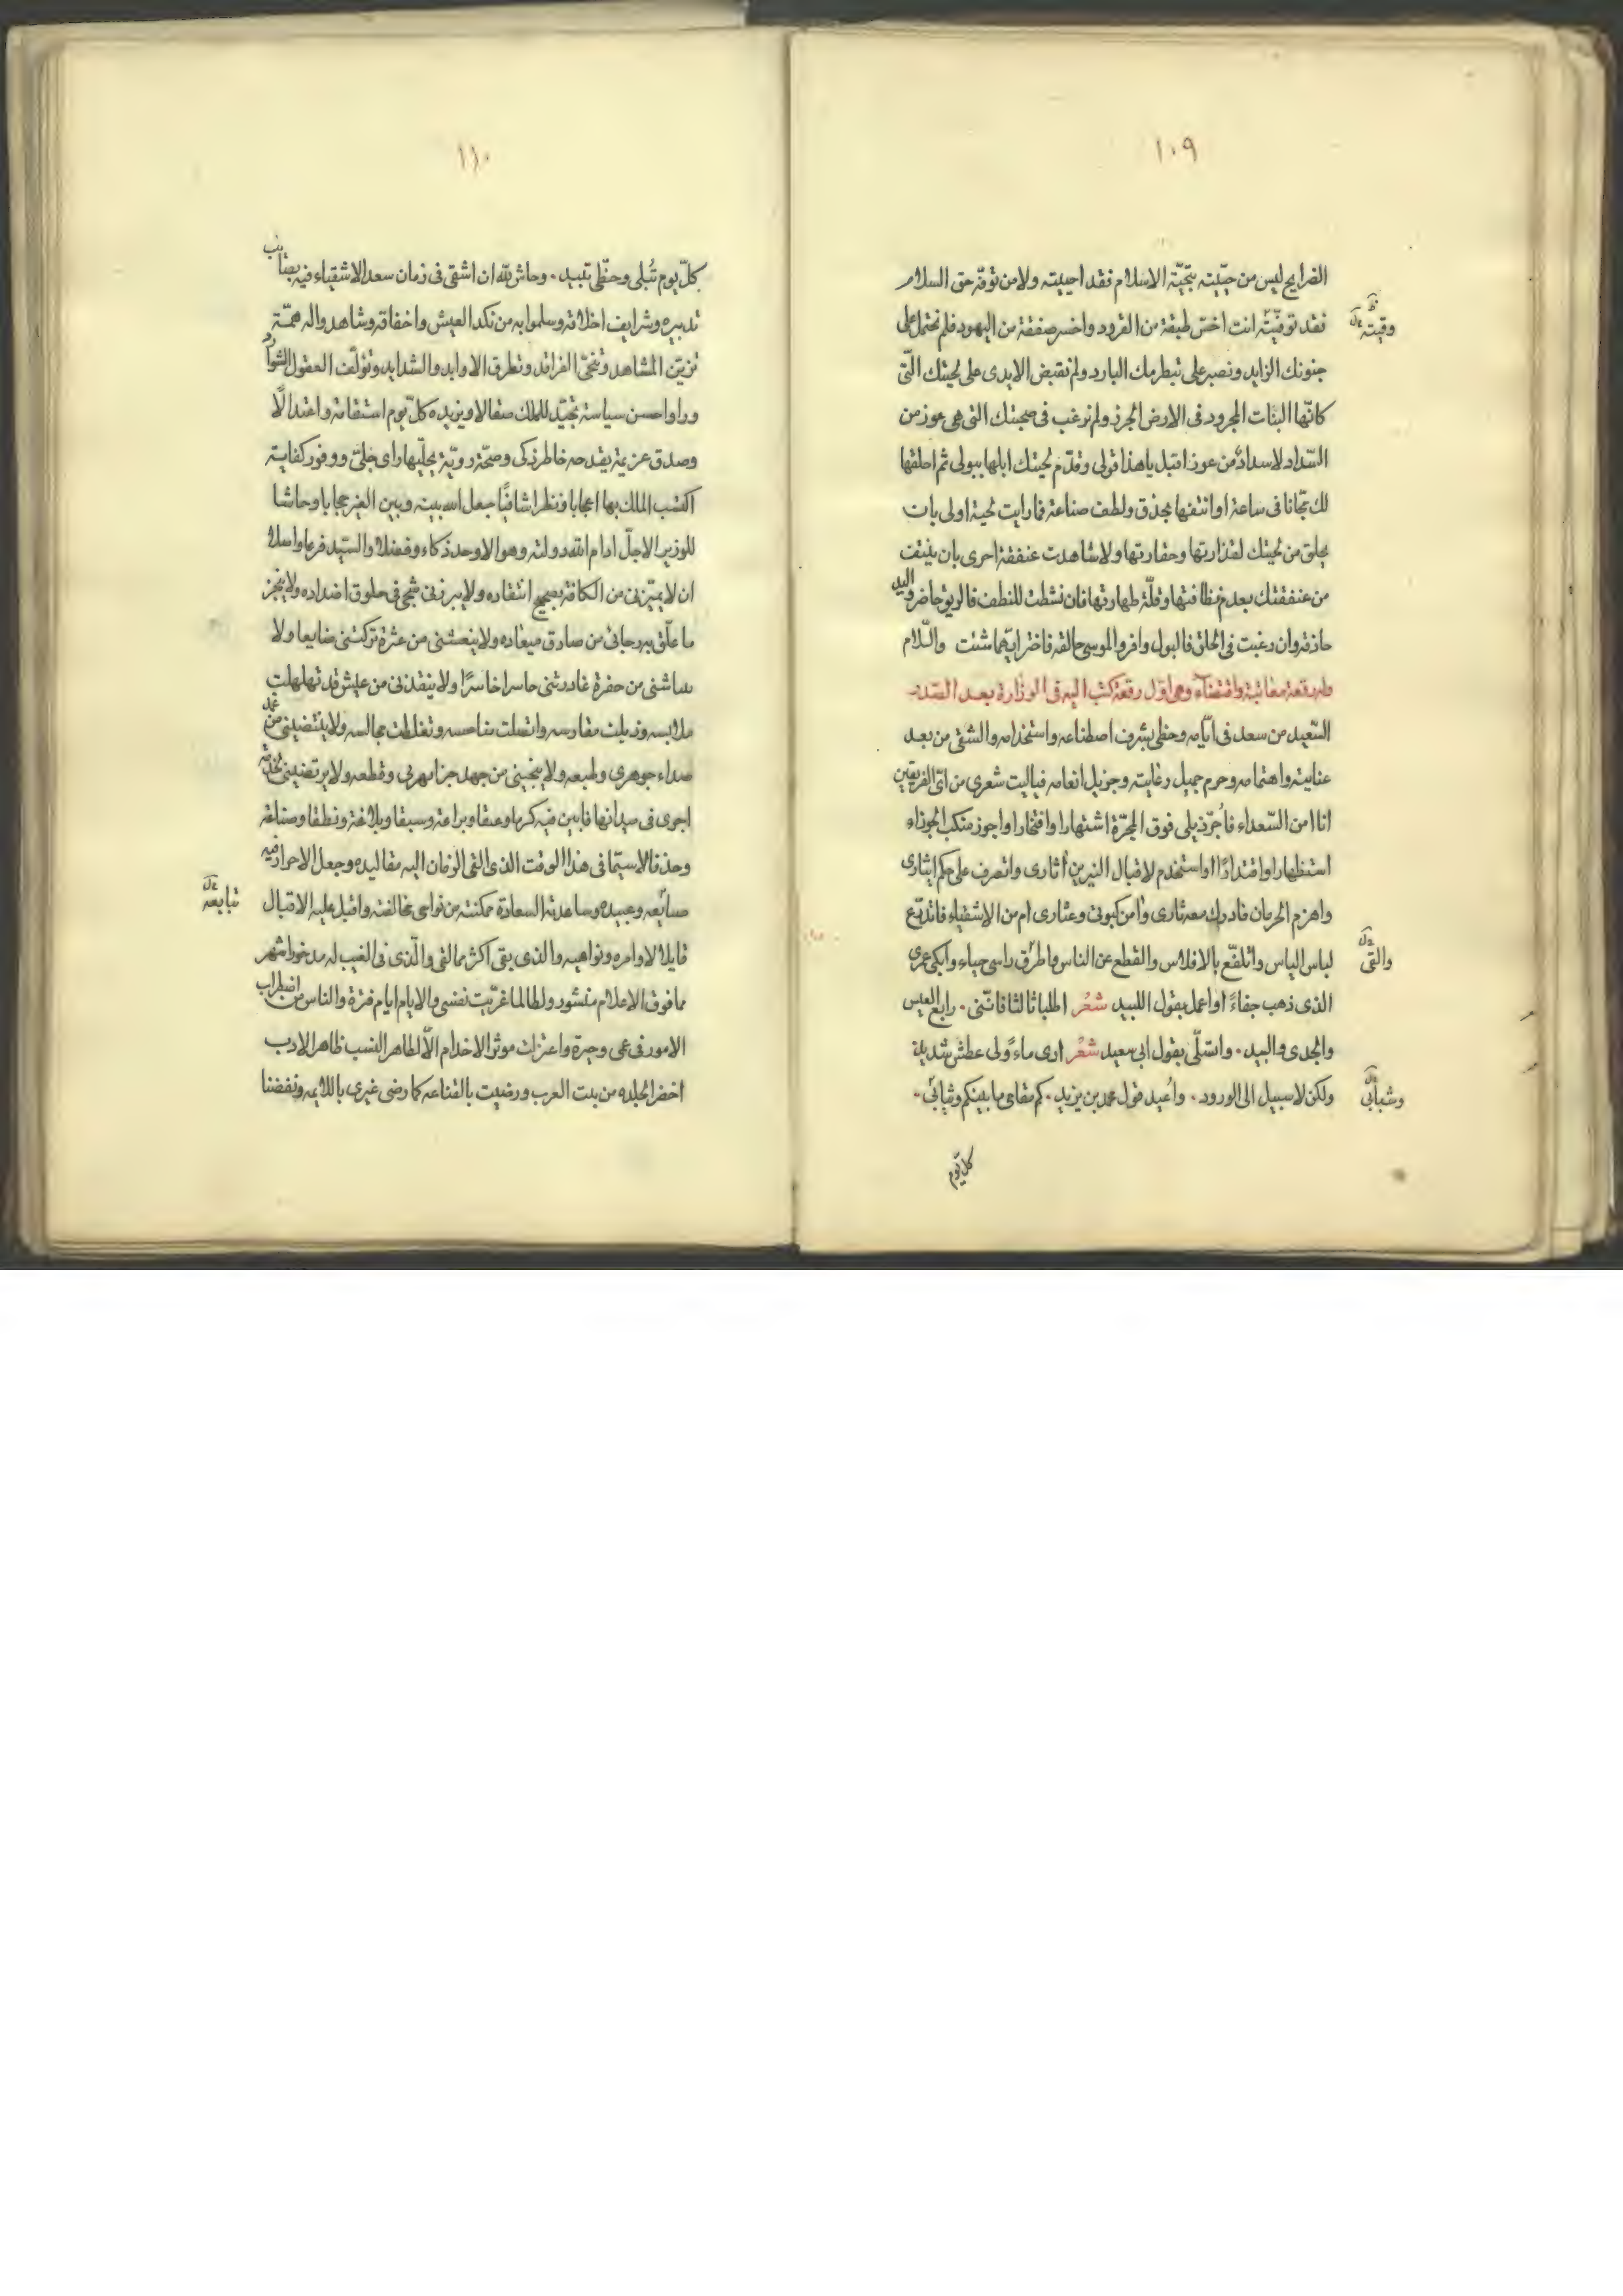 ١٠٩
الضرايح ليس من حيّيته بتحيّة الاسلام فقد احييته ولا من توفّه حق السلام
فقد توفّيته انت اخسّ طبقة من القرود واخسر صفقة من اليهود فلم نحتمل على
وقيته
جنونك الزايد ونصبر على تبظرمك البارد ولم نقبض الايدى على لحيتك التّى
كانّها النبات المجرود فى الارض الجرز ولم نرغب فى صحبتك التى هى عوز من
السّداد لا سدادٌ من عوز اقبل يا هذا قولى وقدّم لحيتك ابلها ببولى ثم احلقها
لك مجّانا فى ساعة او انتفها بحذق ولطف صناعة فما رايت لحية اولى بان
يحلق من لحيتك لقذارتها وحقارتها ولا شاهدت عنفقة احرى بان ينتف
من عنفقتك بعدم نظافتها وقلّة طهارتها فان نشطت للنطف فالريق حاضر واليد
حاذقه وان رغبت فى الحلق فالبول وافر والموسى حالقه فاختر ايّهما شئت والسّلام
وله رقعة معاتبة واقتضآء وهى اوّل رقعة كتب اليه فى الوزارة بعد الصّدر
السّعيد من سعد فى ايّامه وحظى بشرف اصطناعه واستخدامه والشقى من بعد
عنايته واهتمامه وحرم جميل رعايته وجزيل انعامه فياليت شعرى من اىّ الفريقين
انا امن السّعداء فاُجرّ ذيلى فوق المجرّة اشتهارا وافتخارا واجوز منكب الجوزاء
استظهارا واقتدارًا واستخدم لاقبال النيرين اثارى واتصرف على حكم ايثارى
واهزم الحرمان فادرك معه ثارى وامن كبوتى وعثارى ام من الاشقياء فاتدرّع
لباس الياس واتلفّع بالافلاس وانقطع عن الناس واطرق راسى حياء وابكى عمرى
والتقى
الذى ذهب جفاءً او اعمل بقول اللبيد شعْر اطلبا ثالثا فانّنى ٠ رابع العيس
والدجى والبيد ٠ واتسلّى بقول ابى سعيد شعْر ارى ماءً ولى عطش شديد
ولكن لا سبيل الى الورود ٠ واُعيد قول محمد بن يزيد ٠ كم مقامى ما بينكم وثيابى ٠
وشبابى
كل يوم
١١٠
كلّ يوم تُبلى وحظّى تبيد ٠ وحاش لله ان اشقى فى زمان سعد الاشقياء فيه بصائب
تدبيره وشرايف اخلاقه وسلموا به من نكد العيش واخفاقه وشاهدوا له همّة
تزيّن المشاهد وتنحّى الفراقد وتطرق الاوابد والشدايد وتؤلّف العقول الشوارد
وراوا حسن سياسة تجتدّ للملك صقالا ويزيده كلّ يوم استقامة واعتدالًا
وصدق عزيمة يقدحه خاطر ذكى وصحّة رويّة يجلّيها راى جلىّ ووفور كفاية
اكتسب الملك بها اعجابا ونظرا شافيًا جعل الله بينه وبين الغير حجابا وحاشا
للوزير الاجلّ ادام الله دولته وهو الاوحد ذكاء وفضلا والسيّد فرعا واصلا
ان لا يميّزنى من الكافة بصحيح انتقاده ولا يبرزنى شجى فى حلوق اضداده ولا ينجز
ما علّق به رجائى من صادق ميعاده ولا ينعشنى من عثرة تركتنى ضايعا ولا
يناشنى من حفرة غادرتنى حاسرا خاسرًا ولا ينقذنى من عيش قد تهلهلت
ملابسه وذبلت مغارسه واتصلت مناحسه وتغلظت مجالسه ولا ينتضينى من غمد
صداء جوهرى وطبعه ولا ينجينى من جهد جزا بهرنى وقطعه ولا يرتضينى لخدمة
اجرى فى ميدانها فابين فيه كرما وعتقا وبراعة وسبقا وبلاغة ونطقا وصناعة
وحذقا لا سيّما فى هذا الوقت الذى القى الزمان اليه مقاليده وجعل الاحرار فيه
صنائعه وعبيده وساعدته السعادة ممكنته من نواصى مخالفته واقبل عليه الاقبال
تبايعه
قابلا لاوامره ونواهيه والذى بقى اكثر مما لقى والّذى فى الغيب له مدخورا شهر
مما فوق الاعلام منشور ولطالما غرّبت نفسى والايام ايام فترة والناس من اضطراب
الامور فى عمى وحيرة واعتزلت موثرا لاخدام الاّ الطاهر النسب ظاهر الادب
اخضر الجلده من بيت العرب ورضيت بالقناعه كما رضى غيرى باللايمه ونفضنا